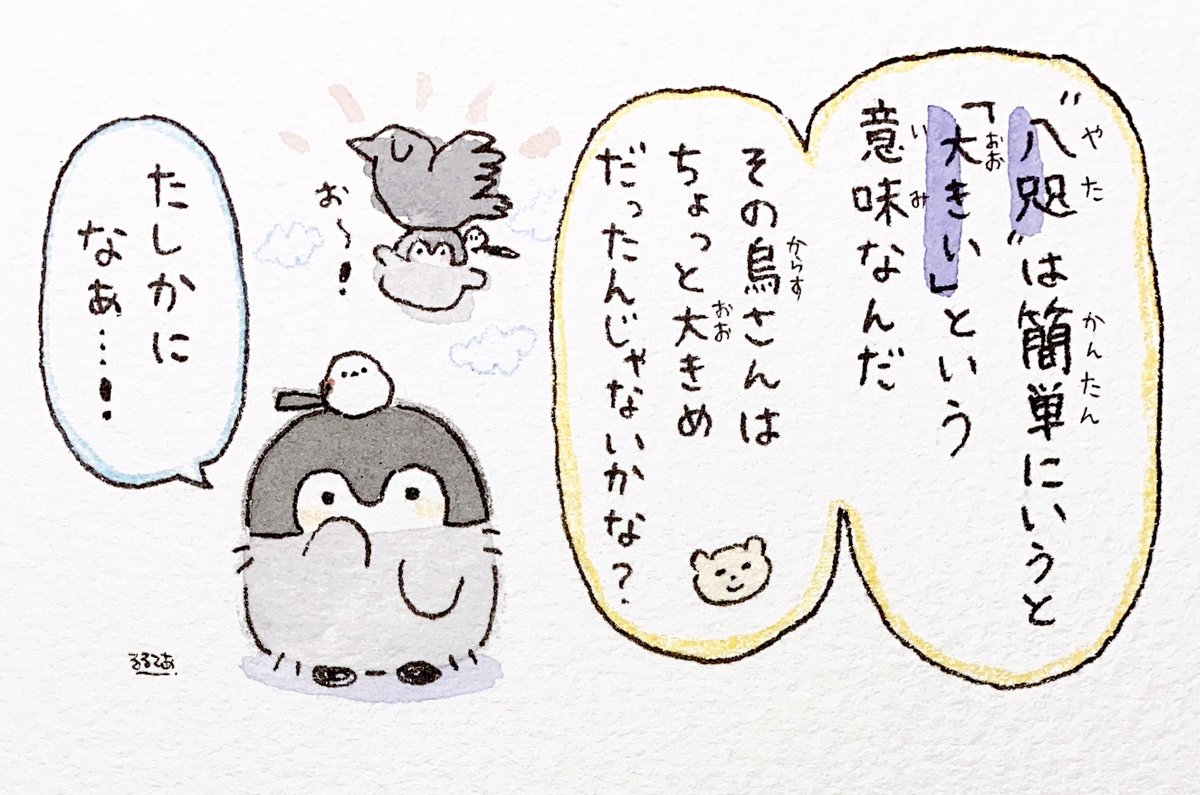 ”八咫”は簡単にいうと
「大きい」という
意味なんだ
その烏さんは
ちょっと大きめ
だったんじゃないかな?
お〜!
たしかに
なぁ…!
るるてあ